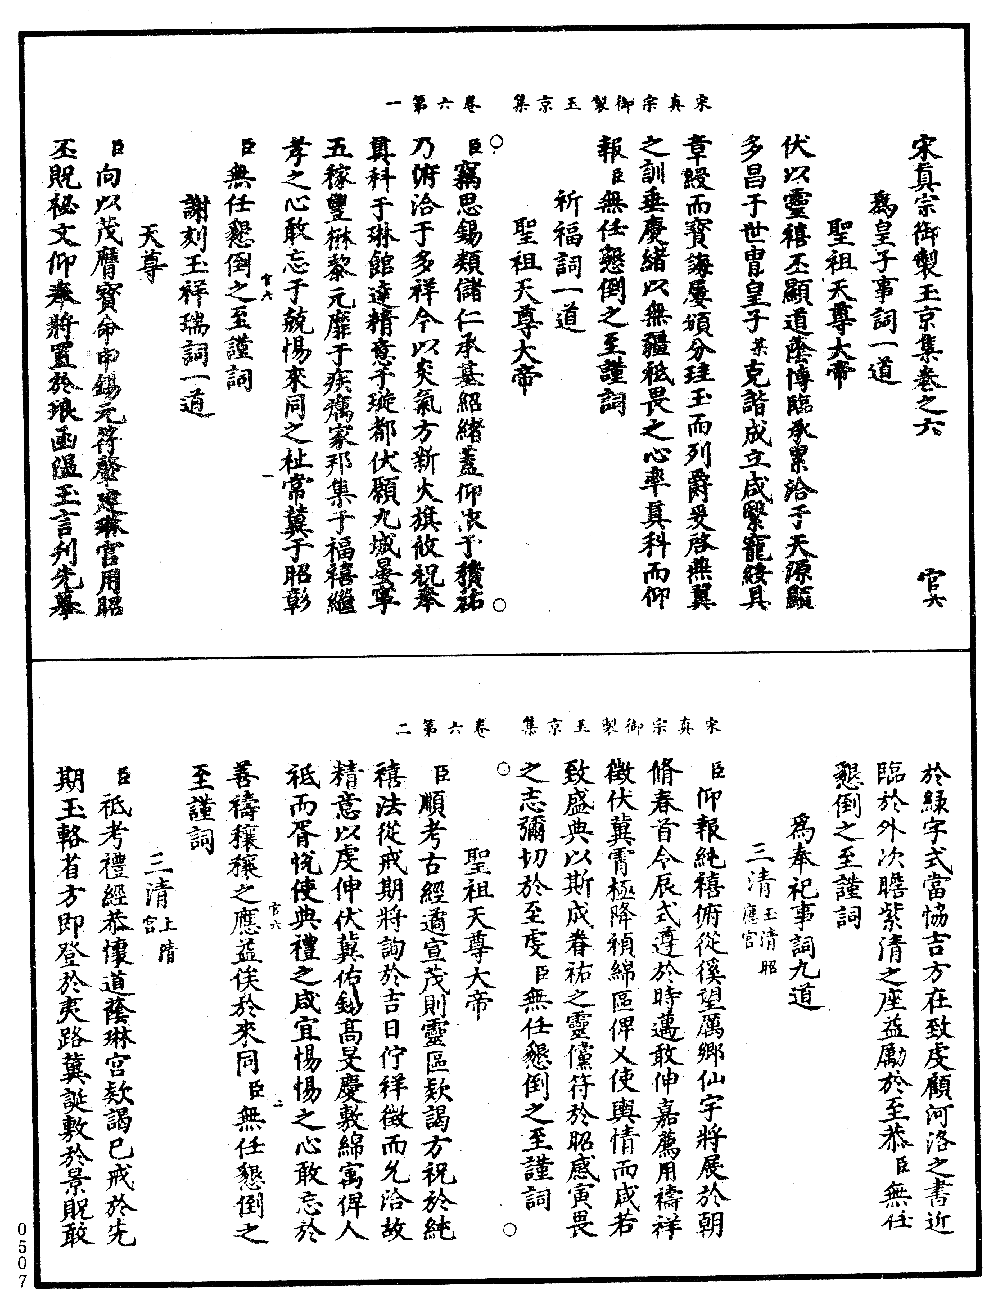 宋真宗御製玉京集　卷六第一
宋真宗御製玉京集卷之六　官六
為皇子事詞一道
聖祖天尊大帝
伏以靈禧丕顯道蔭博臨承稟洽于天源顯
多昌于世冑皇子某克諧成立咸繫寵綏具
章綬而寶誨屢頒分珪玉而列爵爰啓無翼
之訓垂慶緒以無疆祗畏之心率真科而仰
報臣無任懇倒之至謹詞
祈福詞一道
聖祖天尊大帝
臣竊思錫類儲仁承基紹緒蓋仰依于積祐
乃俯洽于多祥今以炎氣方新火旗攸祝奉
真科于琳館達精意于璇都伏願九域晏寧
五稼豐楙黎元靡于疾癘家邦集于福禧繼
孝之心敢忘于兢惕來同之祉常冀于昭彰
臣無任懇倒之至謹詞
官六　一
謝刻玉祥瑞詞一道
天尊
臣向以茂膺寶命申錫元符肇建琳宮用昭
丕貺祕文仰奉將置於琅函醖玉言刋先摹
宋真宗御製玉京集　卷六第二
於綠字式當協吉方在致虔顧河洛之書近
臨於外次瞻紫清之座益勵於至恭臣無任
懇倒之至謹詞
為奉祀事詞九道
三清玉清昭應宮
臣仰報純禧俯從徯望厲鄉仙宇將展於朝
脩春首令辰式遵於時邁敢伸嘉薦用禱祥
徵伏冀霄極降禎綿區俾乂使輿情而咸若
致盛典以斯成眷祐之靈儻符於昭感寅畏
之志彌切於至虔臣無任懇倒之至謹詞
聖祖天尊大帝
臣順考古經遹宣茂則靈區欵謁方祝於純
禧法從戒期將詢於吉日佇祥徵而允洽故
精意以虔伸伏冀佑錫高旻慶敷綿寓俾人
祗而胥悅使典禮之咸宜惕惕之心敢忘於
善禱穰穰之應益俟於來同臣無任懇倒之
至謹詞
官六　二
三清上清宮
臣祗考禮經恭懷道蔭琳宮欵謁已戒於先
期玉輅省方即登於夷路冀誕敷於景貺敢
0507